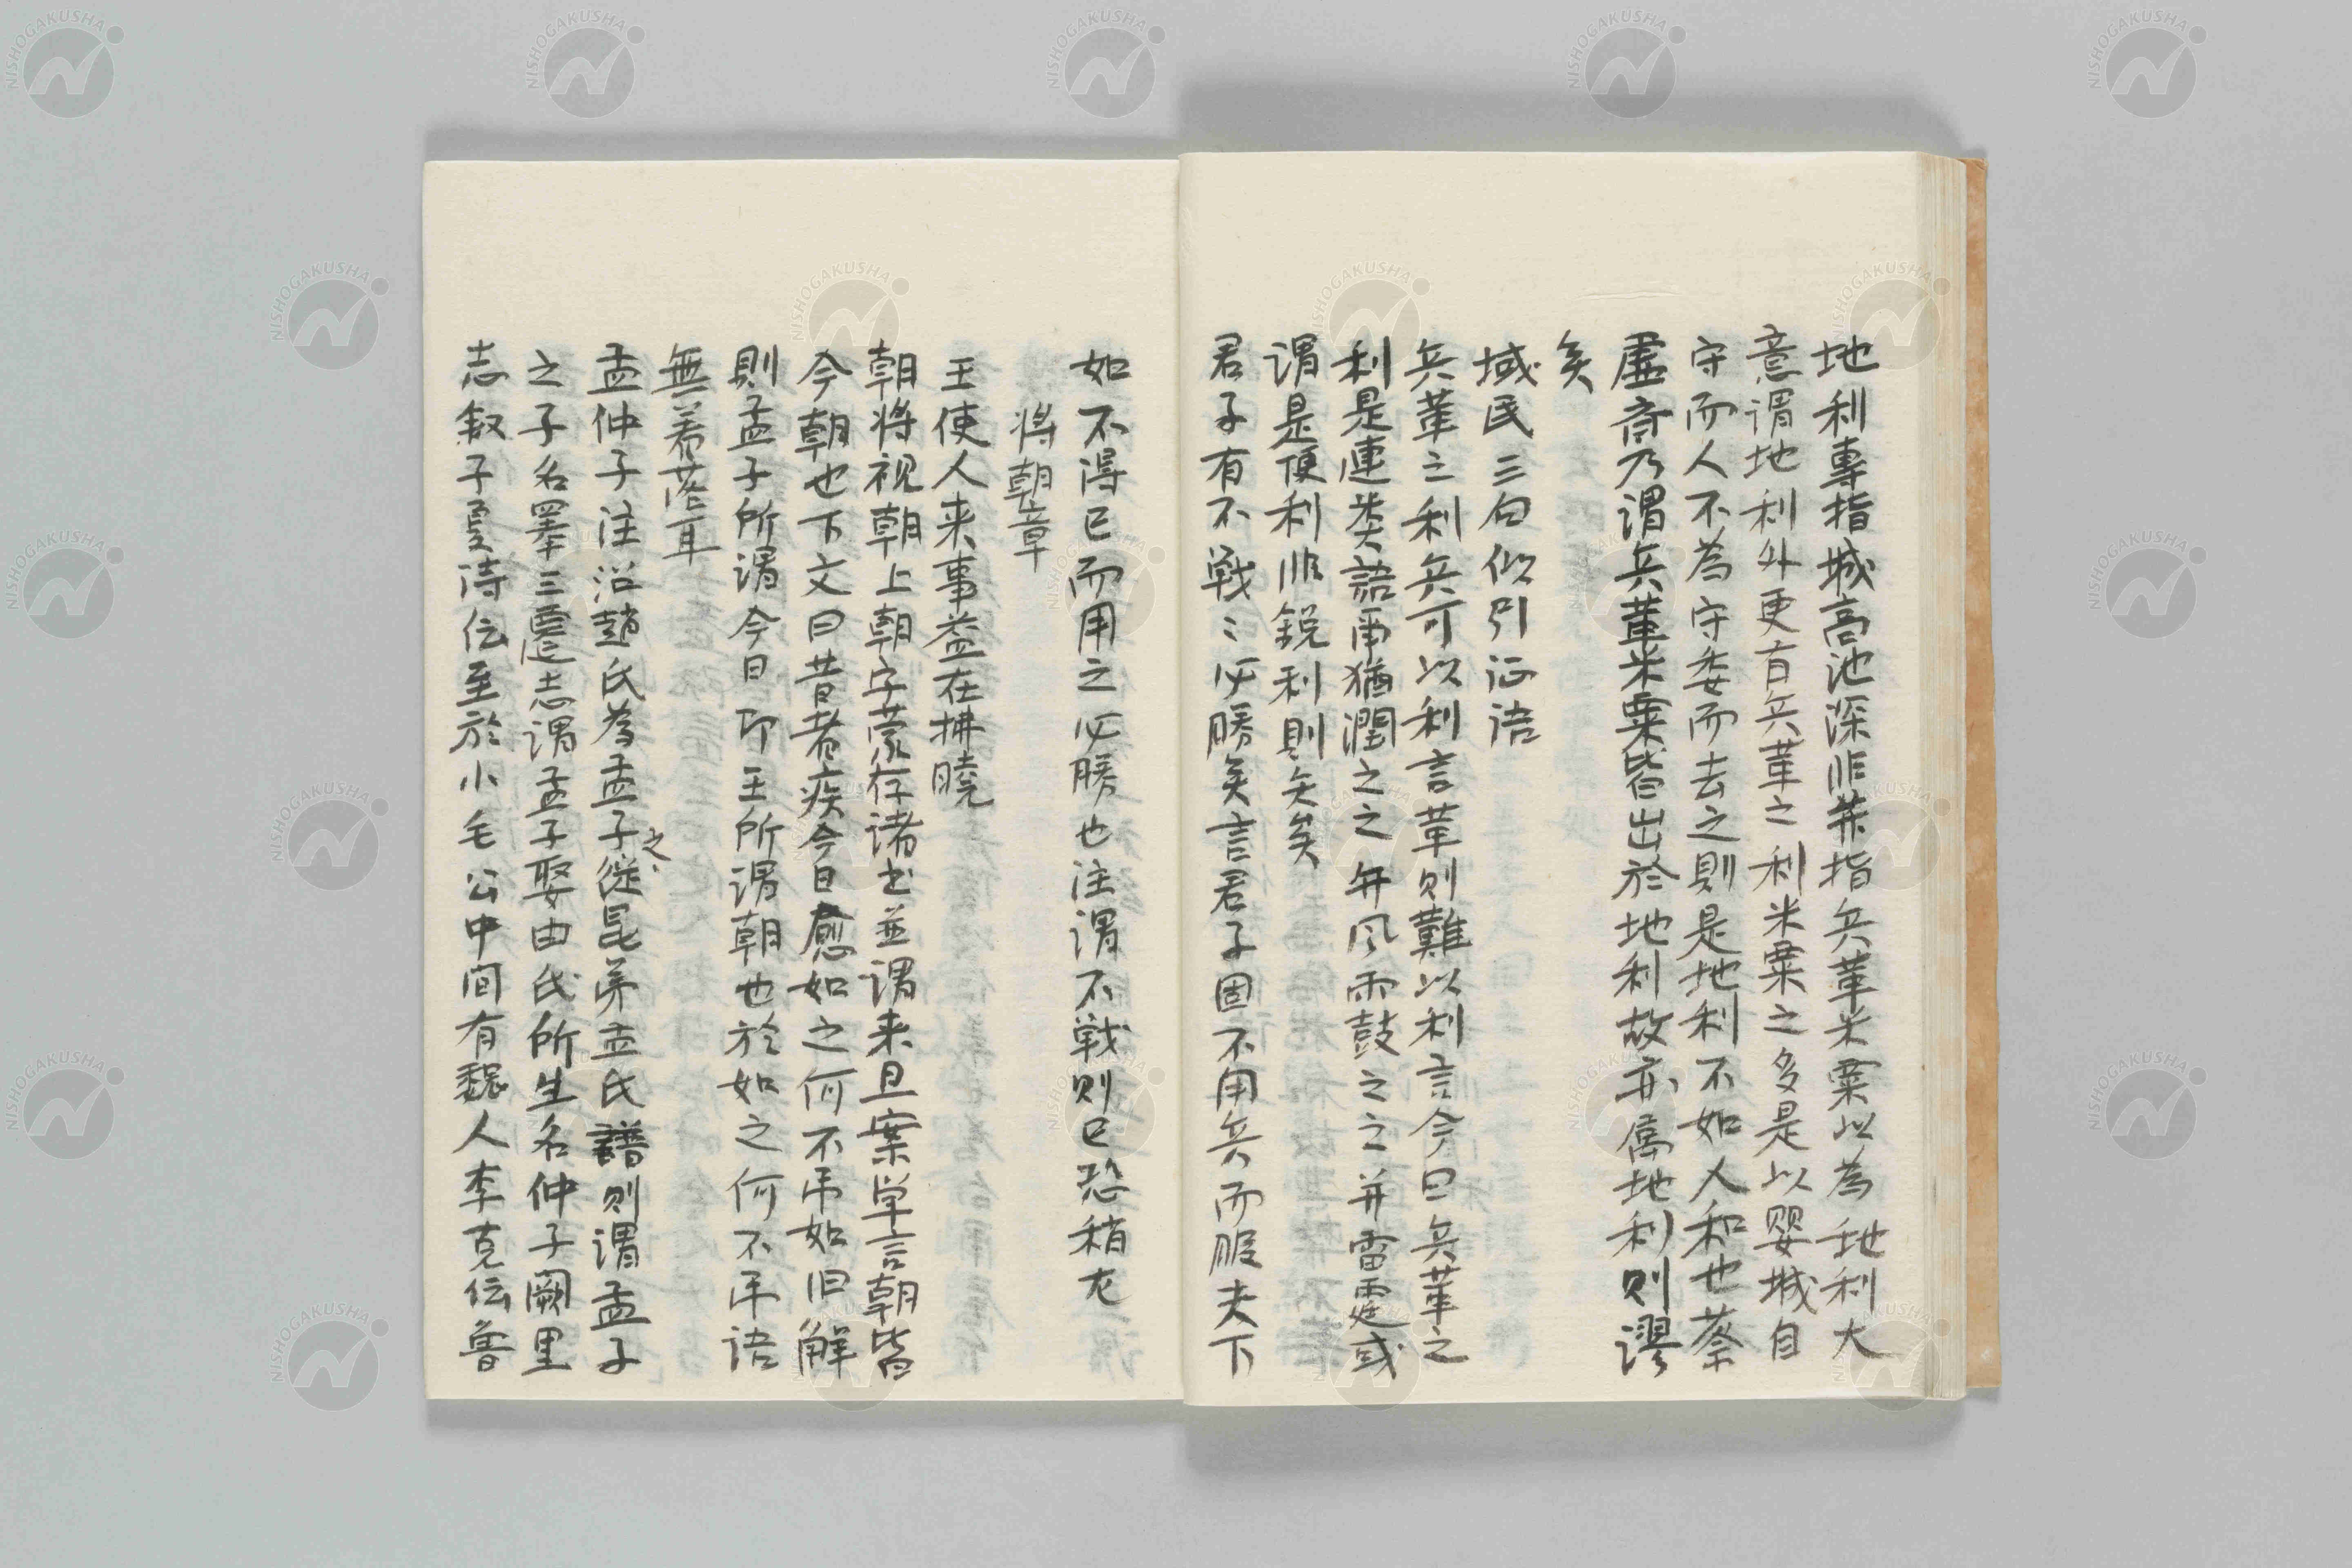 地利專指城高池深非兼指兵革米粟以為地利大
意謂地利外更有兵革之利米粟之多是以嬰城自
守而人不為守委而去之則是地利不如人和也蔡
虛斎乃謂兵革米粟皆出於地利故亦属地利則謬
矣
域民三句似引証语
兵革之利兵可以利言革則難以利言今曰兵革之
利是連类語雨猶潤之之并风雨鼓之之并雷霆或
謂是便利非鋭利則失矣
君子有不戦〻必勝矣言君子固不用兵而服夫下
如不得已而用之必勝也注謂不戦则已恐稍左
将朝章
王使人来事益在拂曉
朝将視朝上朝字蒙存諸书並謂来旦案単言朝皆
今朝也下文曰昔者疾今日愈如之何不吊如旧解
則孟子所謂今日即王所謂朝也於如之何不吊语
無着落耳
孟仲子注沿趙氏為孟子之從昆弟孟氏譜则谓孟子
之子名睪三遷志謂孟子娶由氏所生名仲子阙里
志叙子夏诗伝至於小毛公中间有魏人李克伝魯
NISHOGAKUSHA